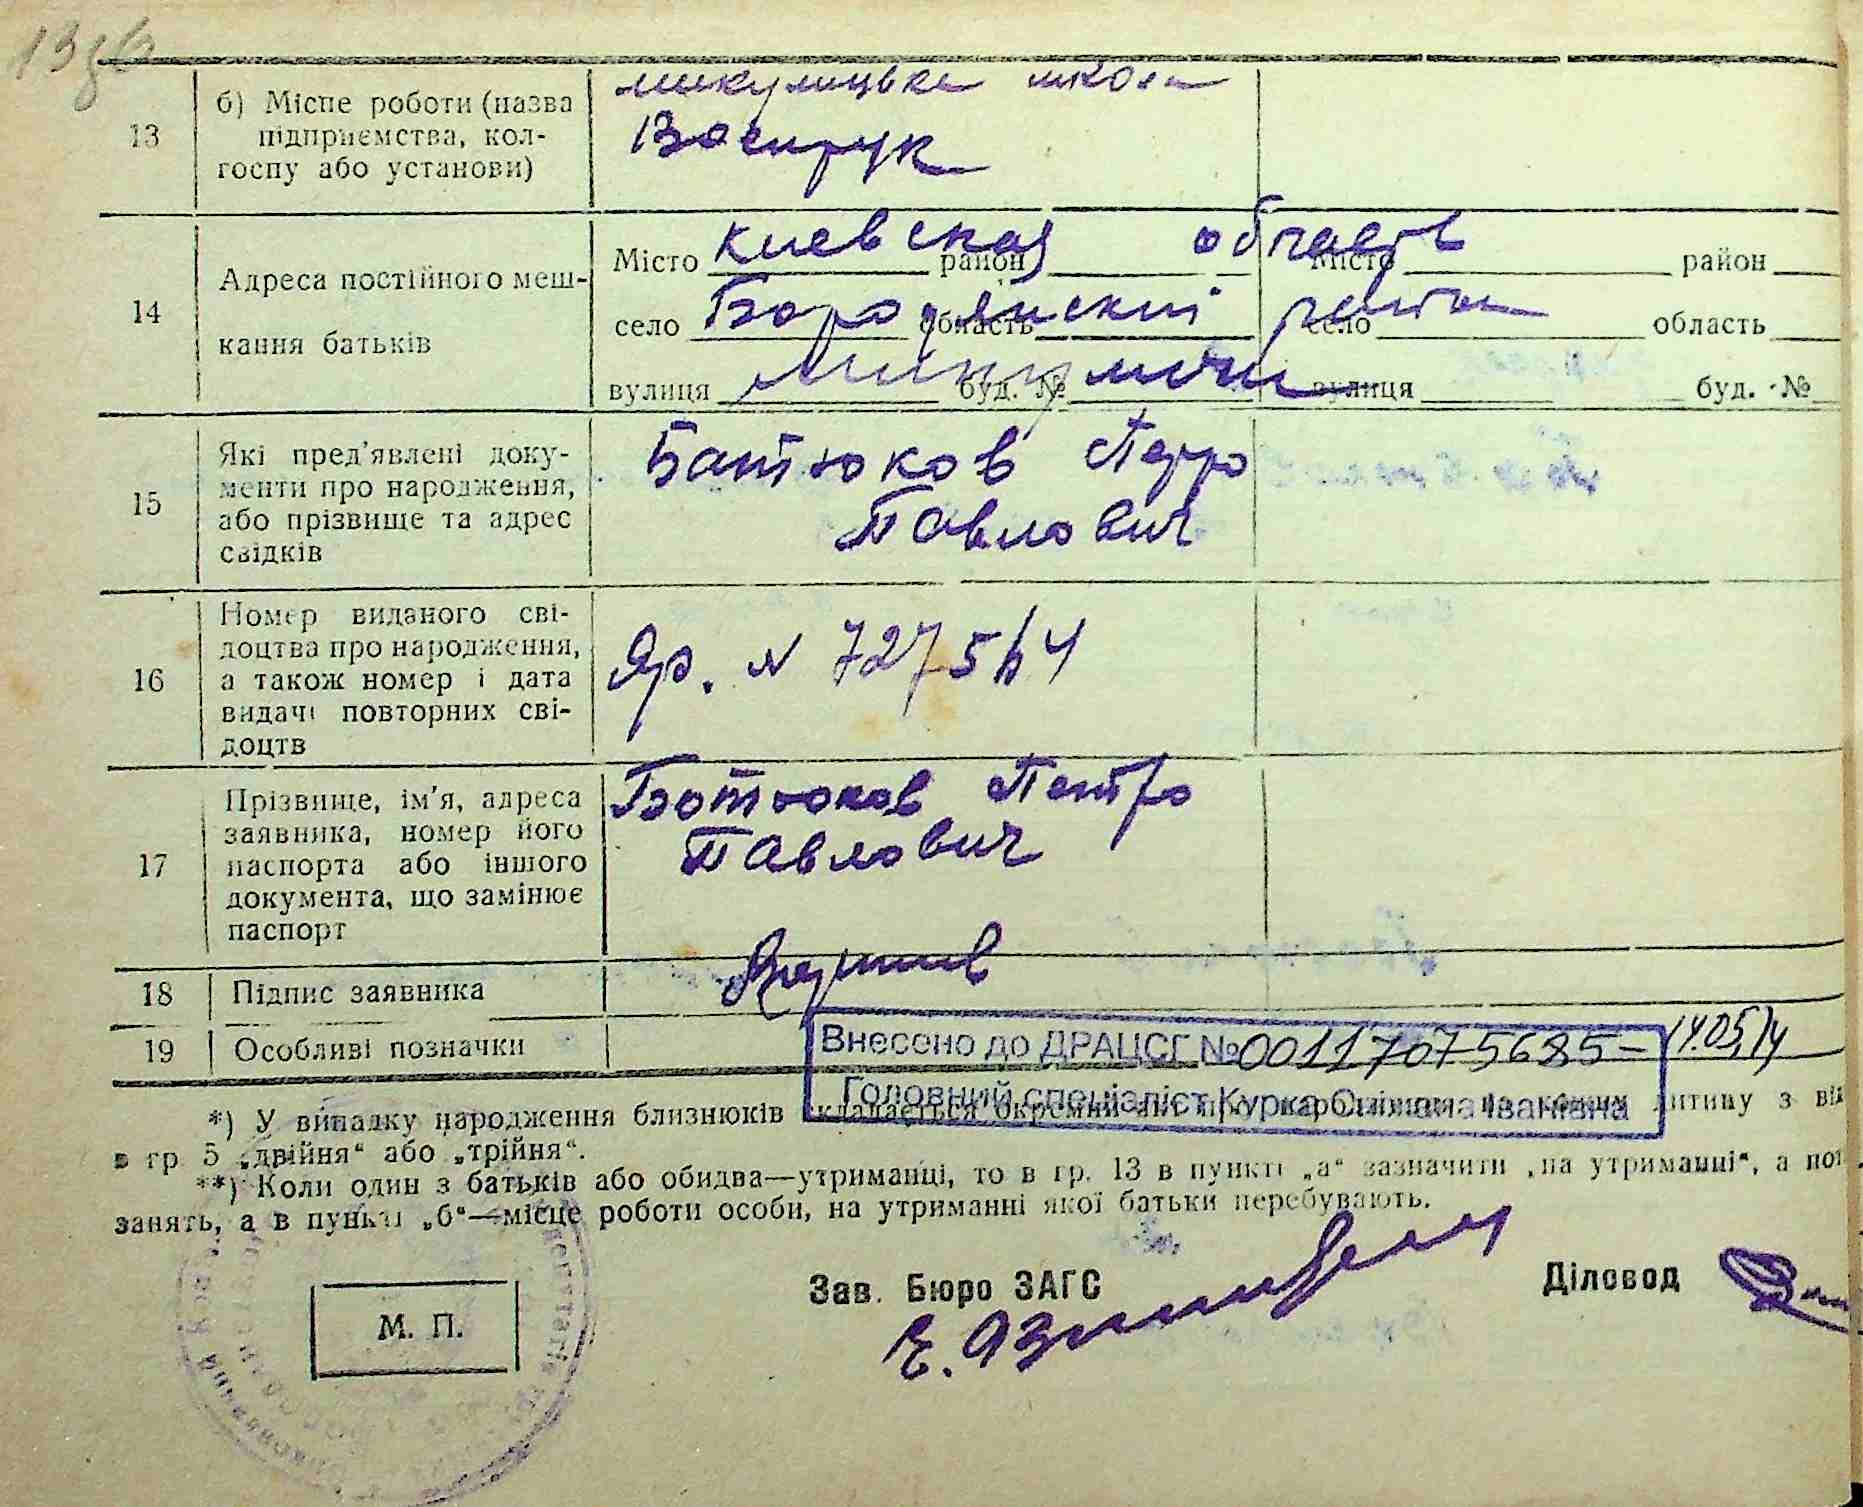 13 зв
13
б) Місце роботи (назва
підприємства, кол-
госпу або установи)
микулицька школа
14
Адреса постійного меш-
кання батьків
Місто район
Киевская область
Місто район
село область
Бородянский район
село область
вулиця буд. №
Микуличи
вулиця буд. №
15
Які пред'явлені доку-
менти про народження,
або прізвище та адрес
свідків
Батюков Петро
Павлович
16
Номер виданого сві-
доцтва про народження,
а також номер і дата
видачі повторних сві-
доцтв
ЯР. №
17
Прізвище, ім'я, адреса
заявника, номер його
паспорта або іншого
документа, що замінює
паспорт
Ботюков Петро
Павлович
18
Підпис заявника
19
Особливі позначки
Внесено до ДРАЦСГ № 00117075685 – 14.05.14
Головний спеціаліст Курка Світлана Іванівна
*) У випадку народження близнюків складається окремий акт про народження на кожну дитину з
в гр 5 „двійня“ або „трійня“.
**) Коли один з батьків або обидва—утриманці, то в гр. 13 в пункті „а“ зазначити „на утриманні“, а
занять, а в пункті „б“—місце роботи особи, на утриманні якої батьки перебувають.
М. П.
Зав. Бюро ЗАГС
Діловод